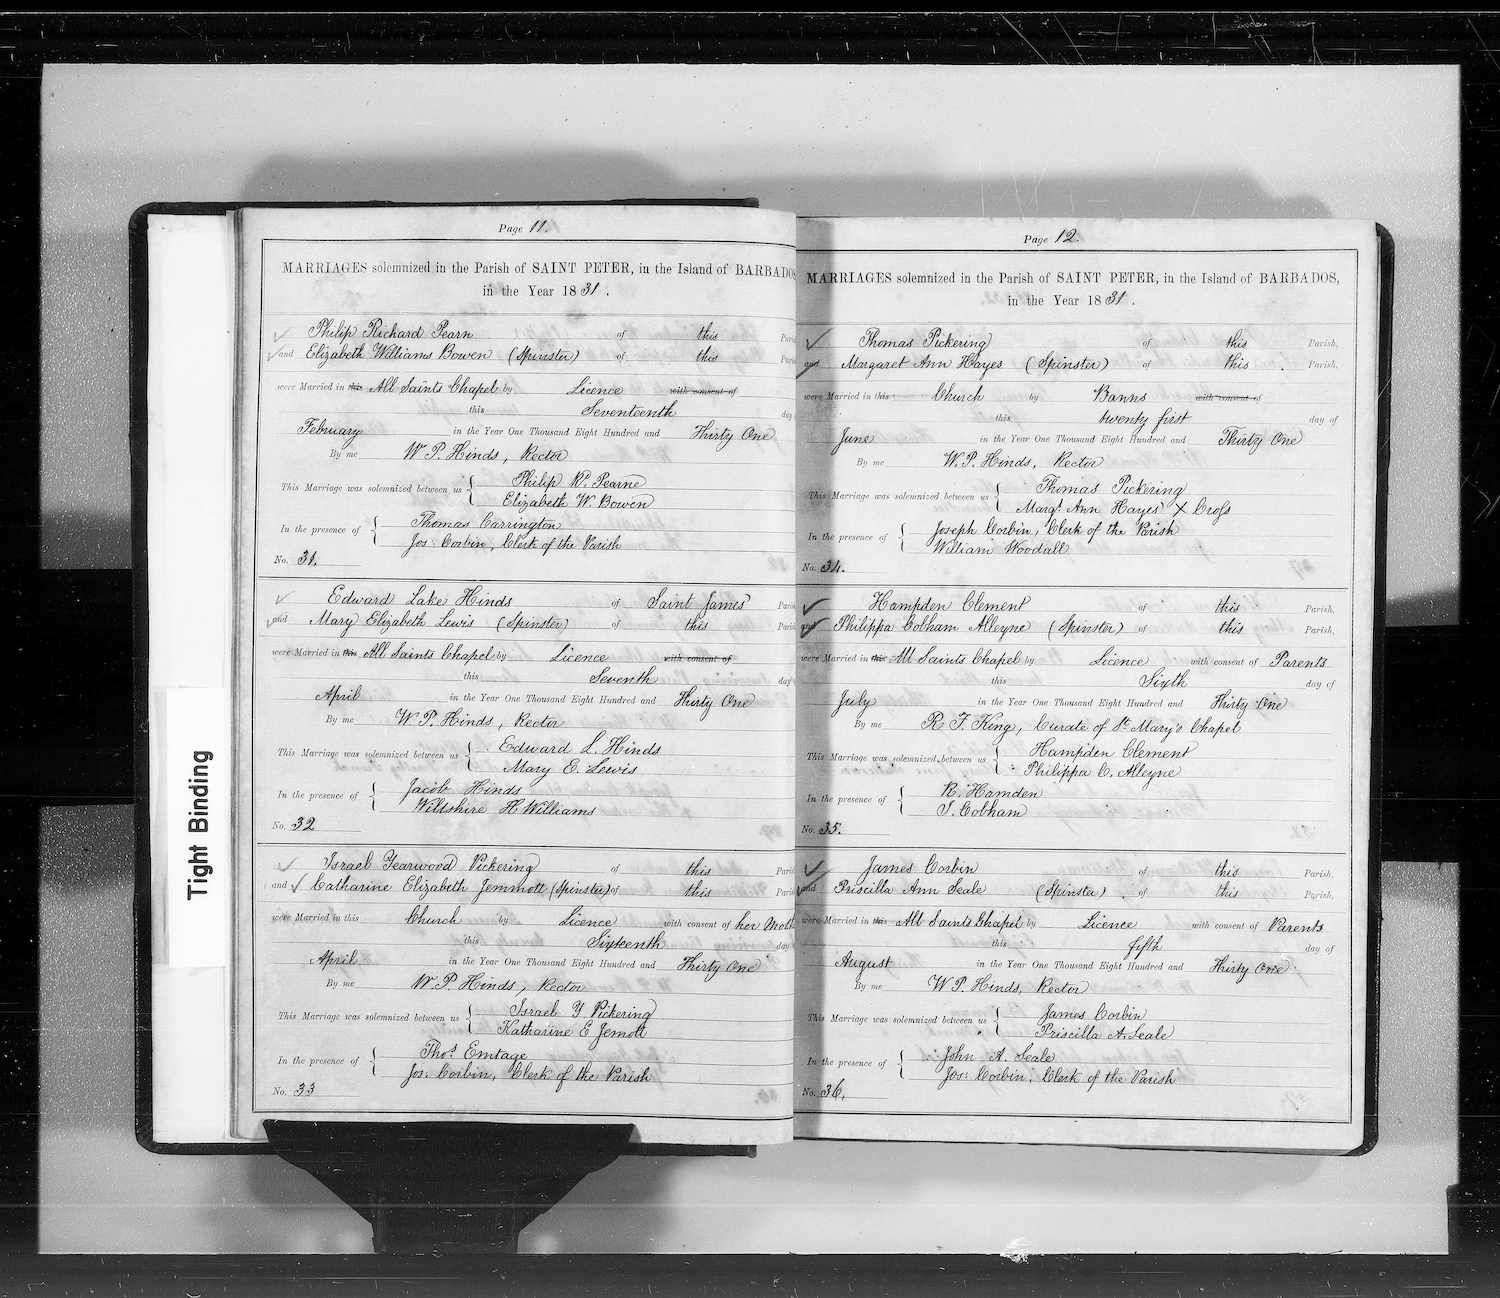 Tight Binding
Page 11.
MARRIAGES solemnized in the Parish of SAINT PETER, in the Island of BARBADOS
in the Year 1831.
Philip Richard Pearn of this Pari
and Elizabeth Williams Bowen (Spinster) of this Pari
were Married in this All Saints Chapel by Licence with consent of
this Seventeenth day
February in the Year One Thousand Eight Hundred and Thirty One
By me W. P. Hinds, Rector
This Marriage was solemnized between us { Philip Rd. Pearne
Elizabeth W. Bowen
In the presence of { Thomas Carrington
Jos: Corbin, Clerk of the Parish
No. 31.
Edward Lake Hinds of Saint James Paris
and Mary Elizabeth Lewis (Spinster) of this Paris
were Married in this All Saints Chapel by Licence with consent of
this Seventh day
April in the Year One Thousand Eight Hundred and Thirty One
By me W. P. Hinds, Rector
This Marriage was solemnized between us { Edward L. Hinds
Mary E. Lewis
In the presence of { Jacob Hinds
Wiltshire H Williams
No. 32
Israel Yearwood Pickering of this Pari
and Catharine Elizabeth Jemmott (Spinster) of this Paris
were Married in this Church by Licence with consent of her Moth
this Sixteenth day
April in the Year One Thousand Eight Hundred and Thirty One
By me W. P. Hinds, Rector
This Marriage was solemnized between us { Israel Y Pickering
Katharine E Jemott
In the presence of { Thos. Emtage
Jos: Corbin, Clerk of the Parish
No. 33
Page 12.
MARRIAGES solemnized in the Parish of SAINT PETER, in the Island of BARBADOS,
in the Year 1831.
Thomas Pickering of this Parish,
and Margaret Ann Hayes (Spinster) of this Parish,
were Married in this Church by Banns with consent of
this twenty first day of
June in the Year One Thousand Eight Hundred and Thirty One
By me W. P. Hinds, Rector
This Marriage was solemnized between us { Thomas Pickering
Margt. Ann Hayes X Cross
In the presence of { Joseph Corbin, Clerk of the Parish
William Woodall
No. 34.
Hampden Clement of this Parish,
and Philippa Cobham Alleyne (Spinster) of this Parish,
were Married in this All Saints Chapel by Licence with consent of Parents
this Sixth day of
July in the Year One Thousand Eight Hundred and Thirty One
By me R. F. King, Curate of St. Mary's Chapel
This Marriage was solemnized between us { Hampden Clement
Philippa C. Alleyne
In the presence of { R. Hamden
S. Cobham
No. 35.
James Corbin of this Parish,
and Priscilla Ann Seale (Spinster) of this Parish,
were Married in this All Saints Chapel by Licence with consent of Parents
this fifth day of
August in the Year One Thousand Eight Hundred and Thirty One
By me W. P. Hinds, Rector
This Marriage was solemnized between us { James Corbin
Priscilla A. Seale
In the presence of { John A. Seale
Jos: Corbin, Clerk of the Parish
No. 36.